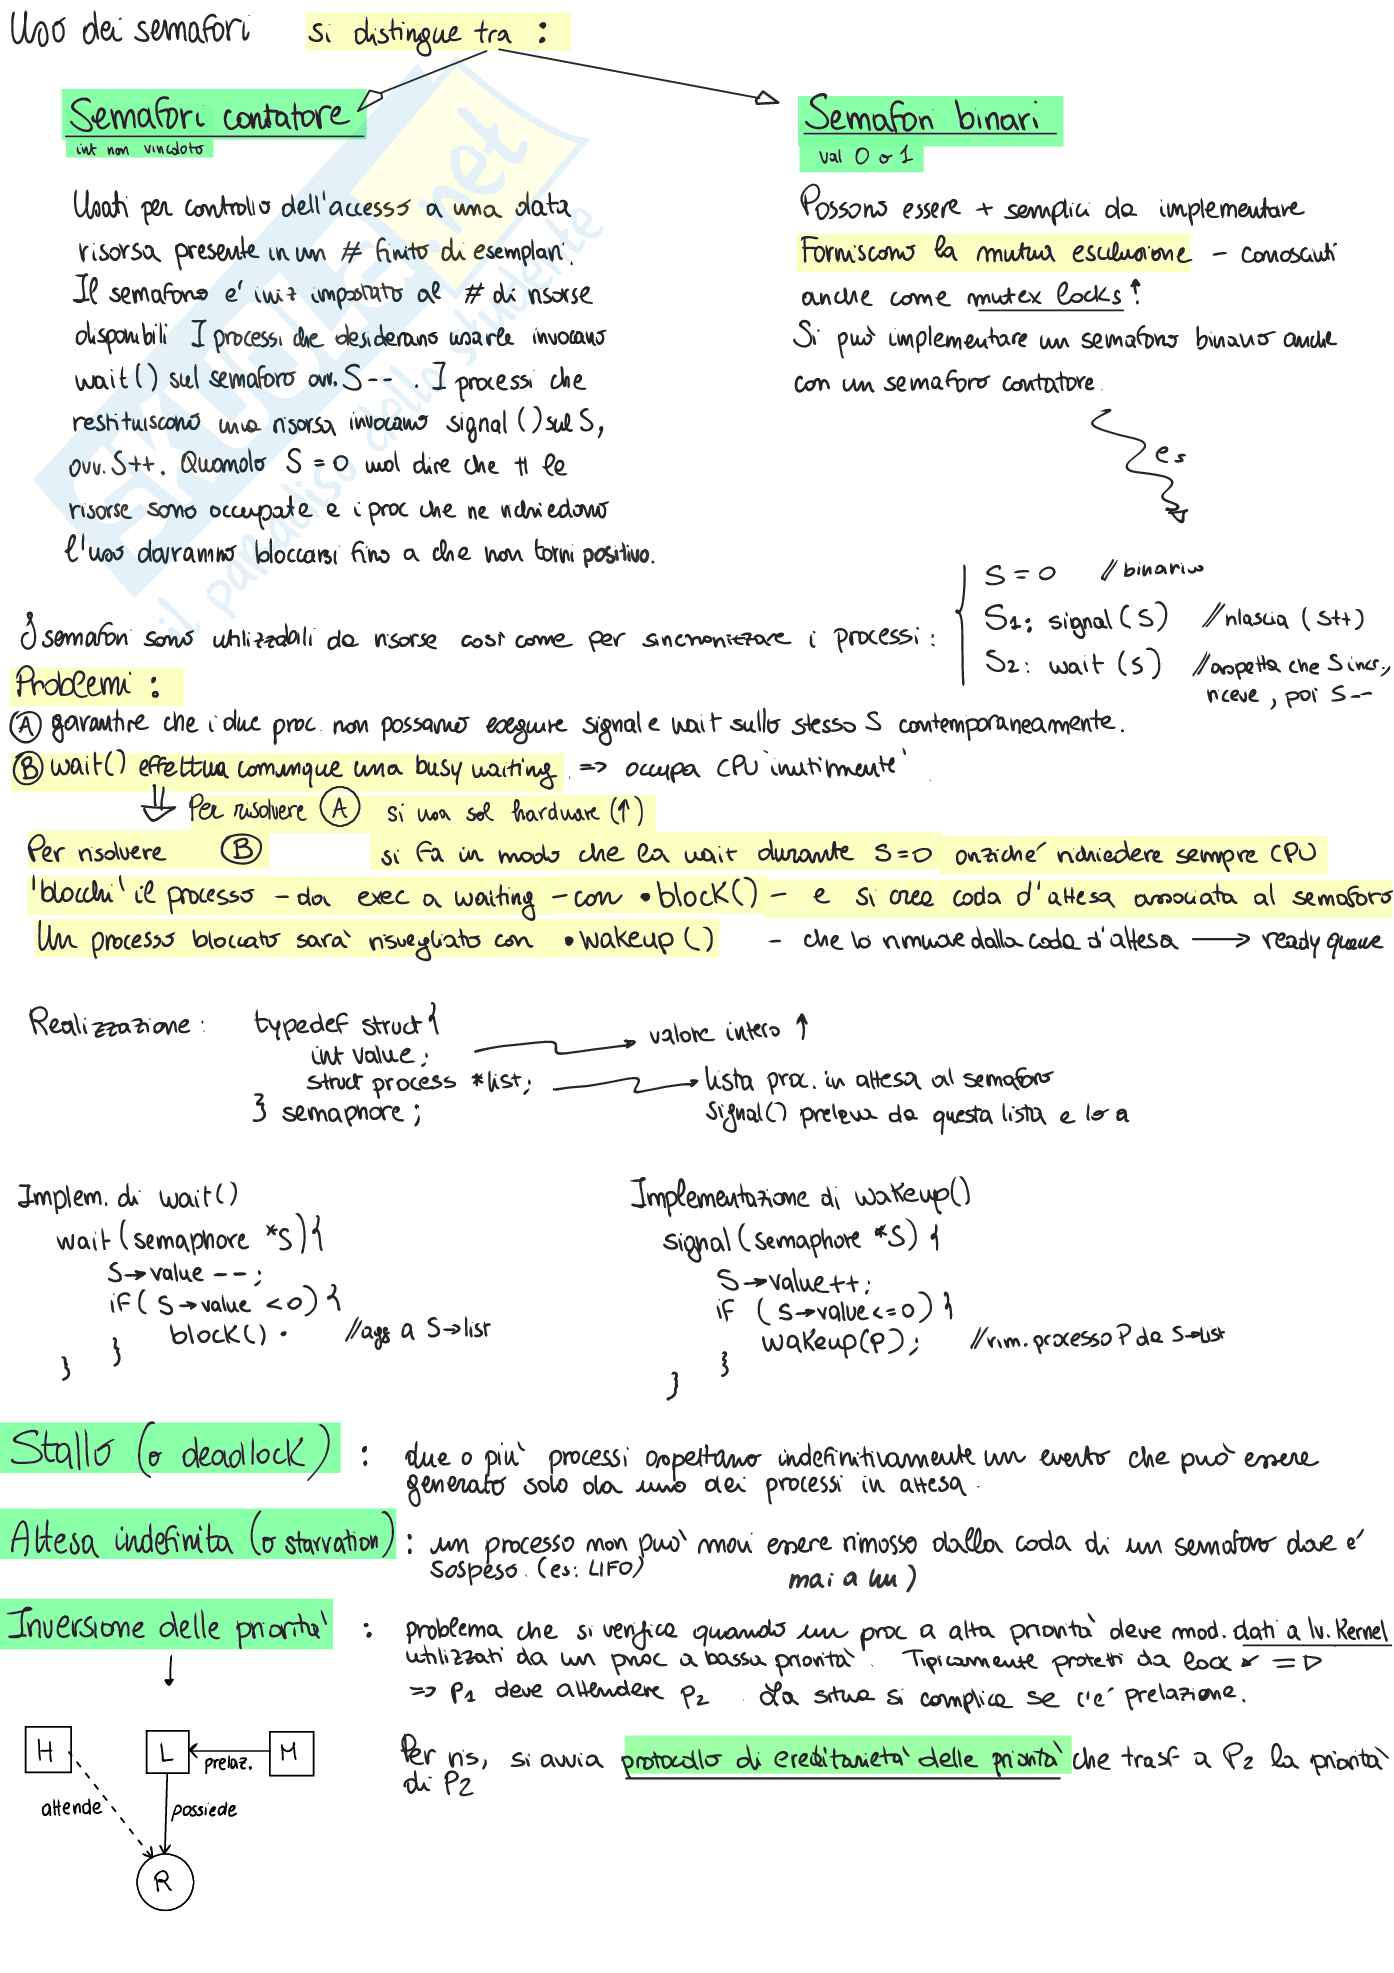 Uso dei semafori si distingue tra :
Semafori contatore
int non vincolato
Usati per controllo dell'accesso a una data
risorsa presente in un # finito di esemplari.
Il semaforo e' iniz impostato al # di risorse
disponibili I processi che desiderano usarle invocano
wait() sul semaforo ovv. S-- . I processi che
restituiscono una risorsa invocano signal() sul S,
ovv. S++. Quando S = 0 vuol dire che tt le
risorse sono occupate e i proc che ne richiedono
l'uso dovranno bloccarsi fino a che non torni positivo.
Semafori binari
val 0 o 1
Possono essere + semplici da implementare
Forniscono la mutua esclusione - conosciuti
anche come mutex locks↑
Si può implementare un semaforo binario anche
con un semaforo contatore.
es
I semafori sono utilizzabili da risorse così come per sincronizzare i processi :
S = 0 //binario
S1: signal(S) //rilascia (S++)
S2: wait(S) //aspetta che S incr.,
riceve, poi S--
Problemi :
(A) garantire che i due proc. non possano eseguire signal e wait sullo stesso S contemporaneamente.
(B) wait() effettua comunque una busy waiting. => occupa CPU inutilmente
Per risolvere (A) si usa sol hardware (↑)
Per risolvere (B) si fa in modo che la wait durante S=0 anziché richiedere sempre CPU
'blocchi' il processo - da exec a waiting - con • block() - e si crea coda d'attesa associata al semaforo
Un processo bloccato sarà risvegliato con • wakeup() - che lo rimuove dalla coda d'attesa → ready queue
Realizzazione : typedef struct{
int value; → valore intero ↑
struct process *list; → lista proc. in attesa al semaforo
} semaphore; signal() preleva da questa lista e lo a
Implem. di wait()
wait(semaphore *S){
S→value --;
if( S→value <0){
block(). //agg a S→list
}
}
Implementazione di wakeup()
signal(semaphore *S) {
S→value++;
if (S→value<=0){
wakeup(P); //rim. processo P da S→list
}
}
Stallo (o deadlock) : due o più processi aspettano indefinitivamente un evento che può essere
generato solo da uno dei processi in attesa.
Attesa indefinita (o starvation) : un processo non può mai essere rimosso dalla coda di un semaforo dove e'
sospeso. (es: LIFO) mai a lui)
Inversione delle priorità : problema che si verifica quando un proc a alta priorità deve mod. dati a lv. Kernel
utilizzati da un proc a bassa priorità. Tipicamente protetti da lock
=> P1 deve attendere P2 . La situa si complica se c'e' prelazione.
H L prelaz. M
attende possiede
R
Per ris, si avvia protocollo di ereditarietà delle priorità che trasf a P2 la priorità
di P2
SKUOLA.net
il paradiso dello studente